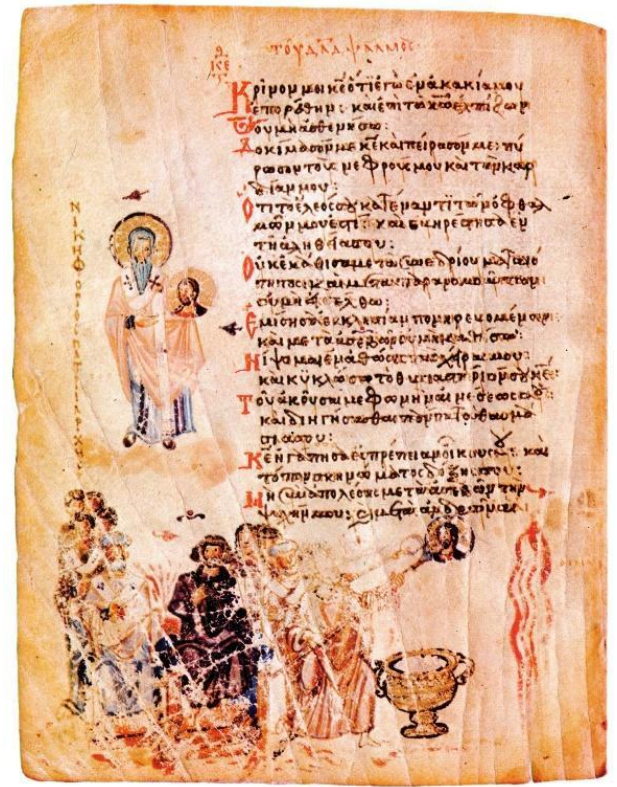 τοῦ δαδ ψαλμός
Κρῖνόν μοι κε ὅτι ἐγὼ ἐν ἀκακία μου
ἐπορεύθην· καὶ ἐπὶ τῷ κω ἐλπίζων
οὐ μὴ ἀσθενήσω:
Δοκίμασόν με κε καὶ πείρασόν με· πύ
ρωσον τοὺς νεφρούς μου καὶ τὴν καρ
δίαν μου:
Ὅτι τὸ ἔλεός σου κατέναντι τῶν ὀφθαλ
μῶν μου ἐστί· καὶ εὐηρέστησα ἐν
τῇ ἀληθεία σου:
Οὐκ ἐκάθισα μετὰ συνεδρίου ματαιό
τητος· καὶ μετὰ παρανομούντων
οὐ μὴ εἰσέλθω:
Ἐμίσησα ἐκκλησίαν πονηρευομένων·
καὶ μετὰ ἀσεβῶν οὐ μὴ καθίσω:
Νίψομαι ἐν ἀθώοις τὰς χεῖράς μου·
καὶ κυκλώσω τὸ θυσιαστήριόν σου κε:
Τοῦ ἀκοῦσαί με φωνῆς αἰνέσεώς σου
καὶ διηγήσασθαι πάντα τὰ θαυμά
σιά σου:
Κε ἠγάπησα εὐπρέπειαν οἴκου σου· καὶ
τόπον σκηνώματος δόξης σου:
Μὴ συναπολέσῃς μετὰ ἀσεβῶν τὴν
ψυχήν μου· καὶ μετὰ ἀνδρῶν
ΝΙΚΗΦΟΡΟΣ ΠΑΤΡΙΑΡΧΗΣ